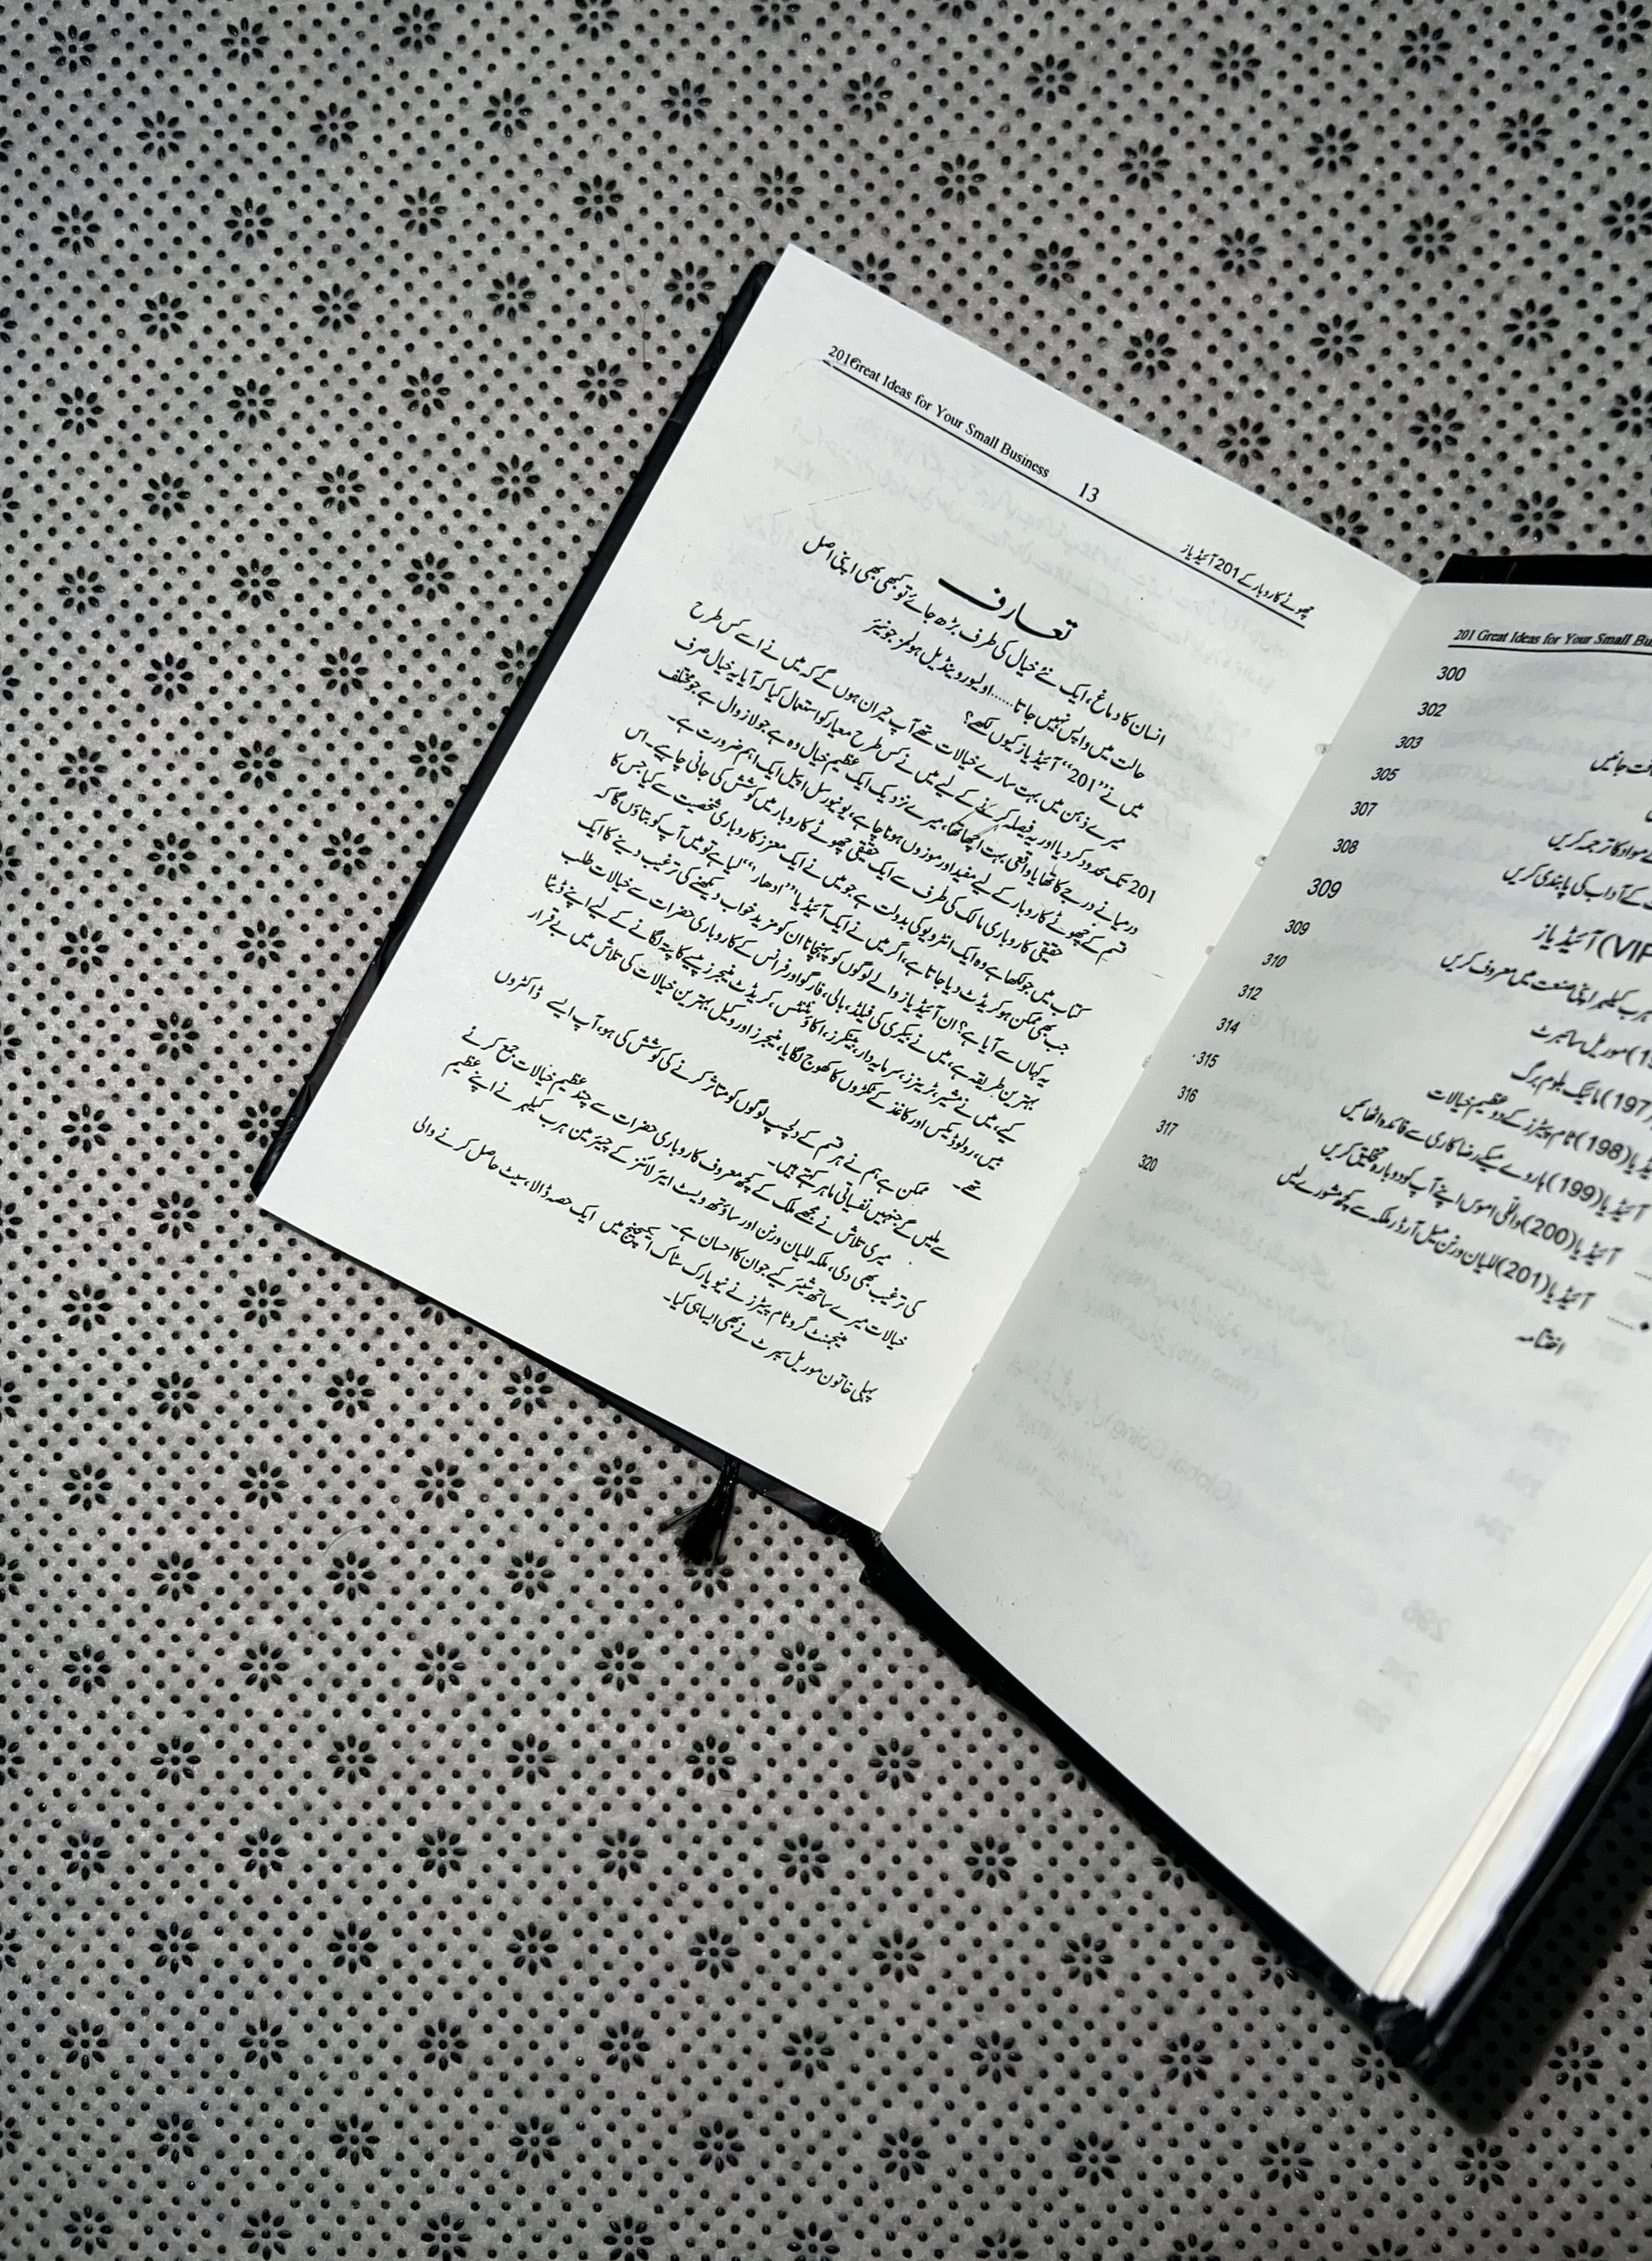 201Great Ideas for Your Small Business 13 چھوٹے کاروبار کے 201 آئیڈیاز
تعارف
انسان کا دماغ، ایک نئے خیال کی طرف بڑھ جائے تو کبھی بھی اپنی اصل
حالت میں واپس نہیں جاتا......اولیور وینڈیل ہولمز جونیئر
میں نے "201" آئیڈیاز کیوں لکھے؟
میرے ذہن میں بہت سارے خیالات تھے آپ حیران ہوں گے کہ میں نے اسے کس طرح
201 تک محدود کر دیا اور یہ فیصلہ کرنے کے لیے میں نے کس طرح معیار کو استعمال کیا کہ آیا یہ خیال صرف
درمیانے درجے کا تھا یا واقعی بہت اچھا تھا، میرے نزدیک ایک عظیم خیال وہ ہے جو لازوال ہے جو مختلف
قسم کے چھوٹے کاروبار کے لیے مفید اور موزوں ہونا چاہے، یونیورسل اپیل ایک اہم ضرورت ہے۔
حقیقی کاروباری مالک کی طرف سے ایک حقیقی چھوٹے کاروبار میں کوشش کی جانی چاہیے۔ اس
کتاب میں جو لکھا ہے وہ ایک انٹرویو کی بدولت ہے جو میں نے ایک معزز کاروباری شخصیت سے کیا جس کا
جب بھی ممکن ہو کریڈٹ دیا جاتا ہے، اگر میں نے ایک آئیڈیا "ادھار" لیا ہے تو میں آپ کو بتاؤں گا کہ
یہ کہاں سے آیا ہے؟ ان آئیڈیاز والے لوگوں کو پہنچانا ان کو مزید خواب دیکھنے کی ترغیب دینے کا ایک
بہترین طریقہ ہے، میں نے بیکری کی فیلڈ، بالی، فارگو اور فرانس کے کاروباری حضرات سے خیالات طلب
کیے، میں نے مشیر، ٹرینرز، سرمایہ دار، بینکرز، اکاؤنٹنٹس، کریڈٹ منیجرز پیسے کا پتہ لگانے کے لیے اپنے ڈیٹا
بیس، رولوڈیکس اور کاغذ کے ٹکڑوں کا کھوج لگایا، منیجرز اور وکیل بہترین خیالات کی تلاش میں بے قرار
تھے۔
ممکن ہے ہم نے ہر قسم کے دلچسپ لوگوں کو متاثر کرنے کی کوشش کی ہو، آپ ایسے ڈاکٹروں
سے ملیں گے جنہیں نفسیاتی ماہر کہتے ہیں۔
میری تلاش نے مجھے ملک کے کچھ معروف کاروباری حضرات سے چند عظیم خیالات جمع کرنے
کی ترغیب بھی دی، ملکہ للیان ورنن اور ساؤتھ ویسٹ ایئر لائنز کے چیئرمین ہرب کیلیہر نے اپنے عظیم
خیالات میرے ساتھ شیئر کیے جو ان کا احسان ہے۔
مینجمنٹ گرو ٹام پیٹرز نے نیویارک سٹاک ایکسچینج میں ایک حصہ ڈالا، سیٹ حاصل کرنے والی
پہلی خاتون موریل سیبرٹ نے بھی ایسا ہی کیا۔
201 Great Ideas for Your Small Bu
300
302
303
305
307
308
309
309
310
312
314
315
316
317
320
مواد کا ترجمہ کریں
کے آداب کی پابندی کریں
(VIP) آئیڈیاز
ہرب کیلیہر اپنی صنعت میں معروف کریں
موریل سائبرٹ
(197) مائیک بلوم برگ
(198) ٹام پیٹرز کے دو عظیم خیالات
آئیڈیا (199) ہاروے میکے رضا کاری سے فائدہ اٹھائیں
آئیڈیا (200) والی اموس اپنے آپ کو دوبارہ تخلیق کریں
آئیڈیا (201) للیان ورنن میل آرڈر ملکہ سے کچھ مشورے لیں
اختتامیہ